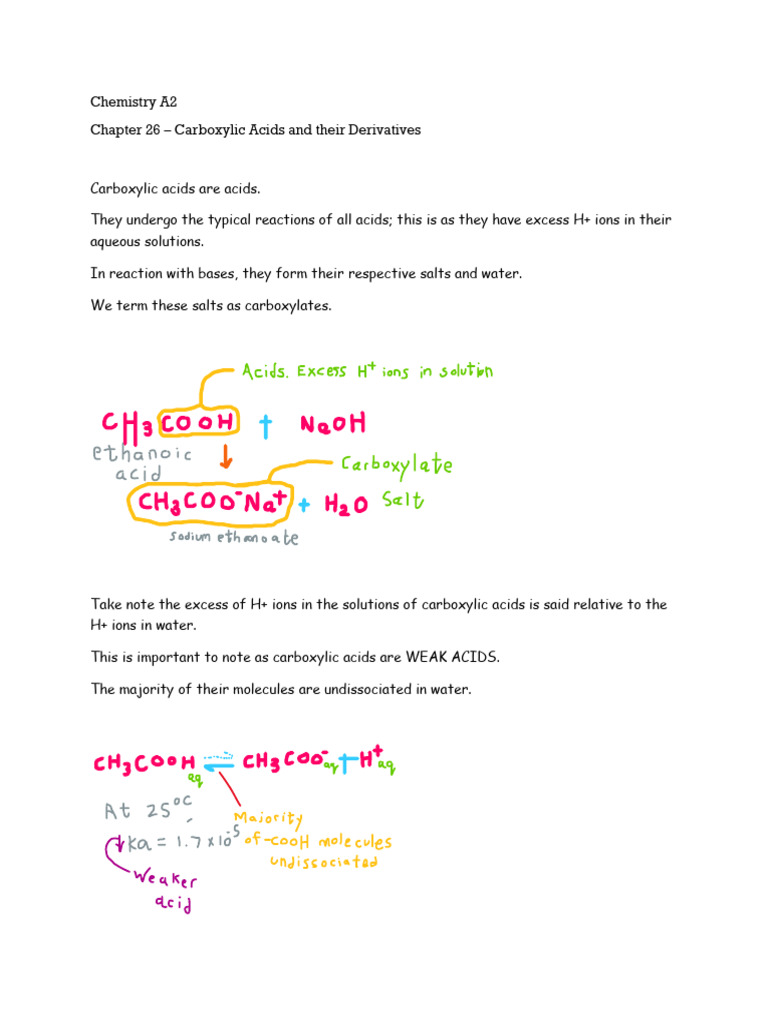 Chemistry A2
Chapter 26 – Carboxylic Acids and their Derivatives
Carboxylic acids are acids.
They undergo the typical reactions of all acids; this is as they have excess H+ ions in their
aqueous solutions.
In reaction with bases, they form their respective salts and water.
We term these salts as carboxylates.
Acids. Excess H⁺ ions in solution
CH₃COOH + NaOH
ethanoic
acid
↓
Carboxylate
CH₃COO⁻Na⁺ + H₂O Salt
sodium ethanoate
Take note the excess of H+ ions in the solutions of carboxylic acids is said relative to the
H+ ions in water.
This is important to note as carboxylic acids are WEAK ACIDS.
The majority of their molecules are undissociated in water.
CH₃COOH aq ⇌ CH₃COO⁻ aq + H⁺ aq
At 25°C,
Majority
↓Ka = 1.7 × 10⁻⁵ of -COOH molecules
undissociated
Weaker
acid